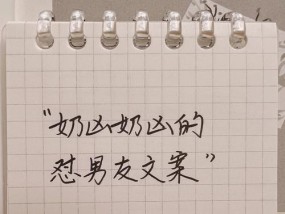 "奶凶奶凶的
怼男友文案"